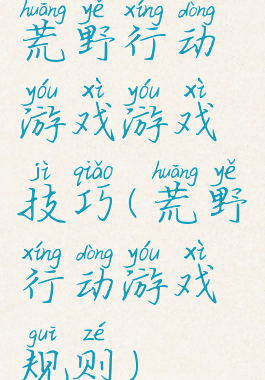 huāng yě xíng dòng
荒野行动
yóu xì yóu xì
游戏游戏
jì qiǎo huāng yě
技巧(荒野
xíng dòng yóu xì
行动游戏
guī zé
规则)